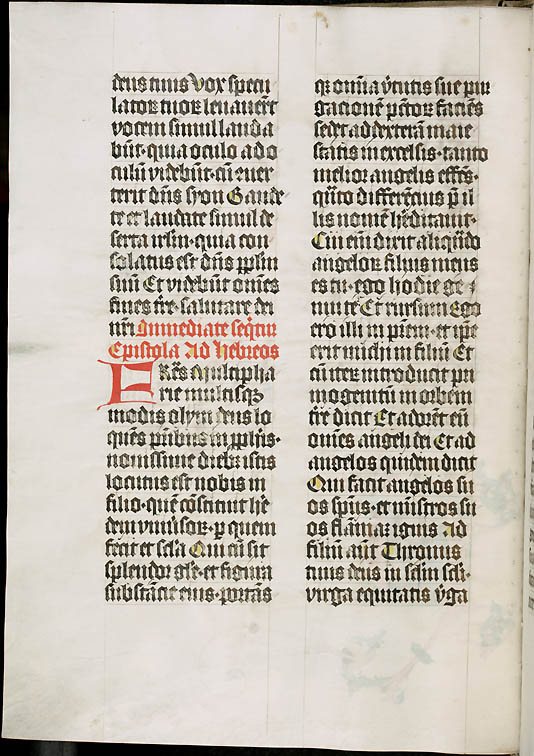 deus tuus Vox specu
latoꝝ tuoꝝ leuauer̄t
vocem simul lauda
būt· quia oculo ad o
culū videbūt· cū ꝯuer
terit dn̄s syon Gaude
te et laudate simul de
serta irlm̄· quia con
solatus est dn̄s pplm̄
suū Et videbūt om̄es
fines tr̄e· salutare dei
nr̄i Immediate seqͥtur
Epistola Ad Hebreos
FRēs Multipha
rie multisqꝫ
modis olym deus lo
quēs pr̄ibus in ꝓphis·
nouissime diebꝫ istis
locutus est nobis in
filio· quē cōstituit he
dem vniuersoꝝ· ꝑ quem
fecit et scl̄a Qui cū sit
splendor gl̄e· et figura
substācie eius· portās
qꝫ omīa v̄tutis sue pur
gacionē pctōꝝ faciēs
sedet ad dexterā maie
statis in excelsis· tanto
melior angelis effcūs·
quāto differēcius p̄ il
lis nomē hēditauit·
Cui em̄ dixit aliqn̄do
angeloꝝ filius meus
es tu· ego hodie ge
nui te Et rursum Ego
ero illi in p̄rem· et ip̄e
erit michi in filiū Et
cū iteꝝ introducit pri
mogenitū in orbem
tr̄e dicit Et adorēt eū
om̄es angeli dei Et ad
angelos quidem dicit
Qui facit angelos su
os sp̄us· et mīstros su
os flāmā ignis Ad
filiū aūt Thronus
tuus deus in sclm̄ scl̄i·
virga equitatis v̄ga